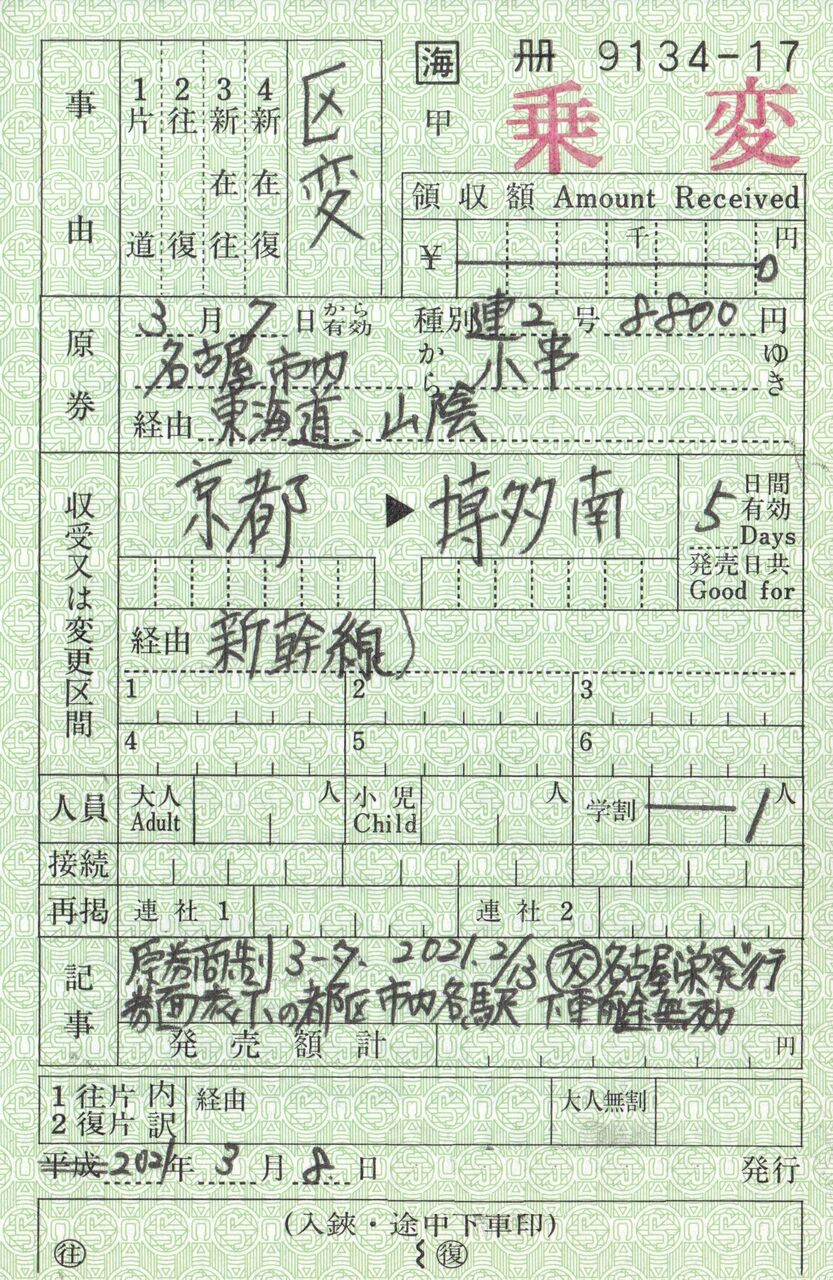 海 冊 9134-17
甲 乗変
事由
1片道
2往復
3新在往
4新在復
区変
領収額 Amount Received
¥ 千 円 0
原券
3月7日から有効 種別 連2号 8800円
名古屋市内 から 小串 ゆき
経由 東海道、山陰
収受又は変更区間
京都 ▶ 博多南
5日間有効
Days
発売日共
Good for
経由 新幹線)
1 2 3
4 5 6
人員 大人 Adult 人 小児 Child 人 学割 1人
接続
再掲 連社1 連社2
記事
原券商制 3-7. 2021.2/13 交 名古屋栄発行
券面表示の都区市内各駅 下車前途無効
発売額計 円
1往片 2復片 内訳 経由 大人無割
平成 2021年 3月 8日 発行
(入鋏・途中下車印)
往 復